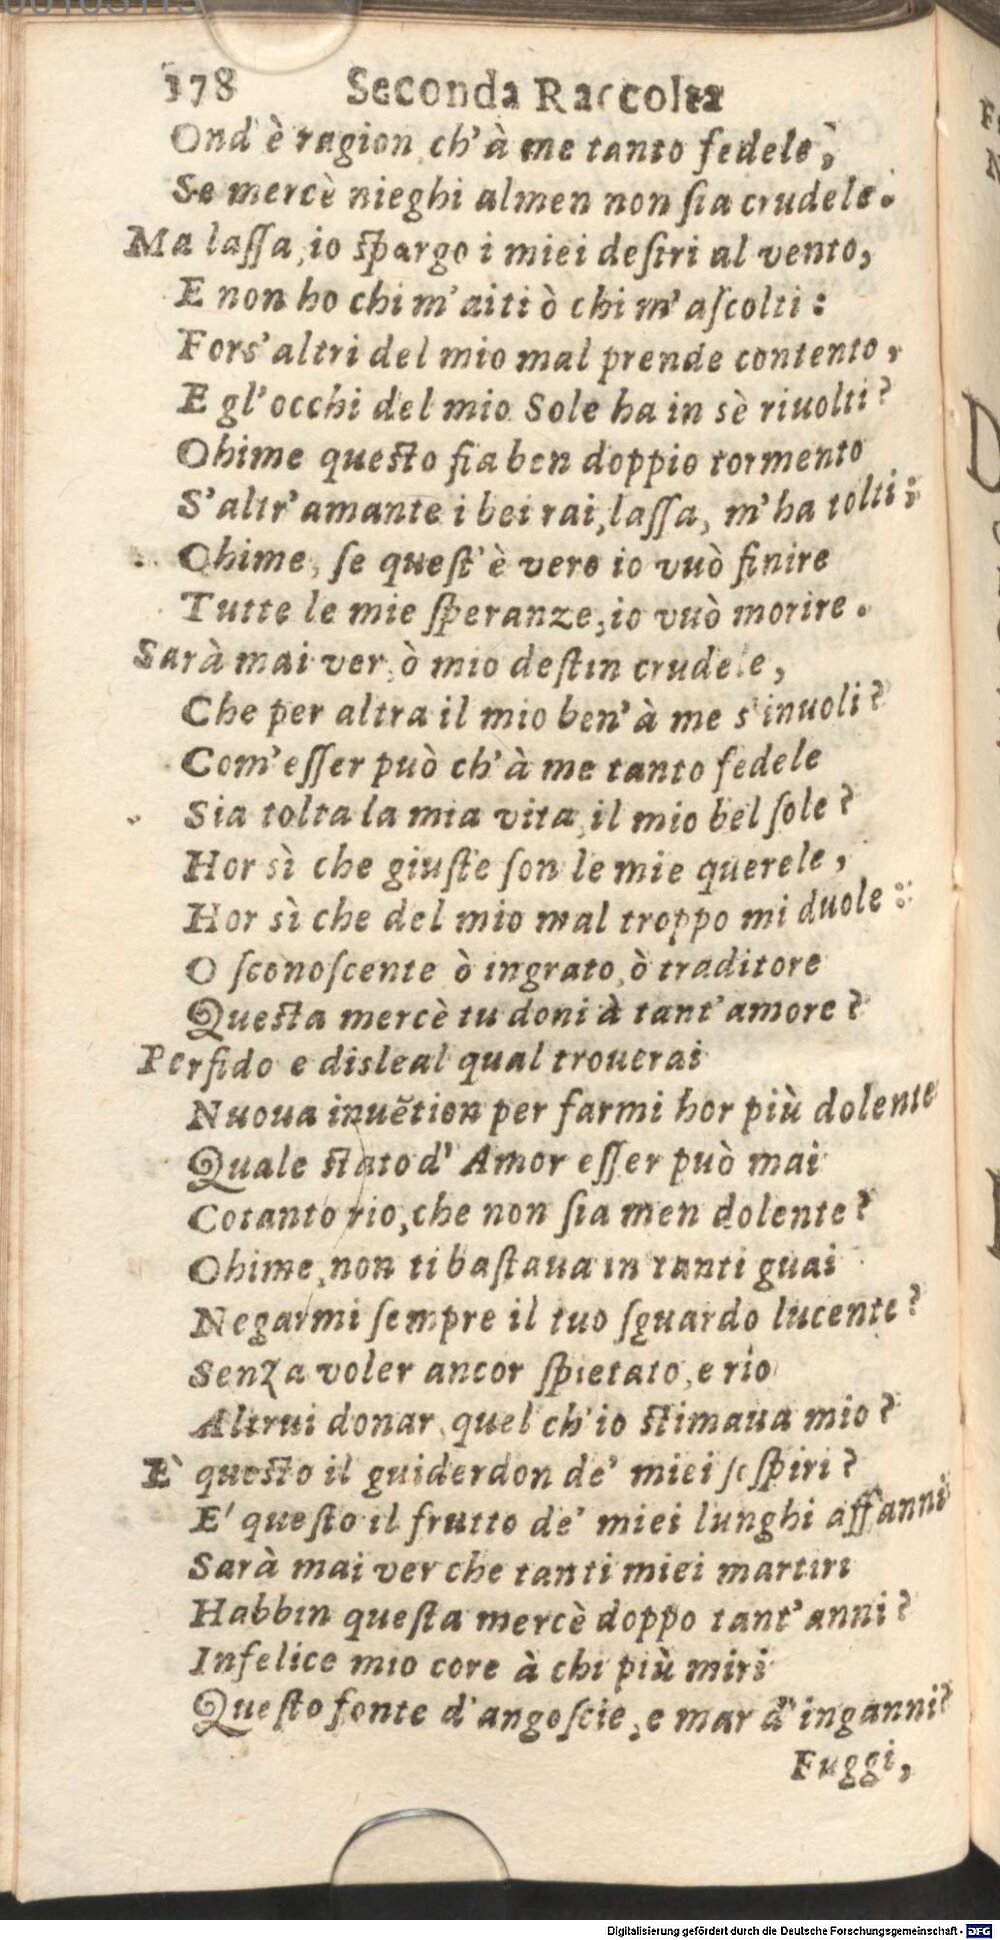 178 Seconda Raccolta
Ond' è ragion ch' à me tanto fedele,
Se mercè nieghi almen non ſia crudele.
Ma laſſa, io ſpargo i miei deſiri al vento,
E non ho chi m' aiti ò chi m' aſcolti:
Fors' altri del mio mal prende contento,
E gl' occhi del mio Sole ha in sè riuolti?
Ohime queſto fia ben doppio tormento
S' altr' amante i bei rai, laſſa, m' ha tolti;
Ohime, ſe queſt' è vero io vuò finire
Tutte le mie ſperanze, io vuò morire.
Sarà mai ver, ò mio deſtin crudele,
Che per altra il mio ben' à me s' inuoli?
Com' eſſer può ch' à me tanto fedele
Sia tolta la mia vita, il mio bel ſole?
Hor sì che giuſte ſon le mie querele,
Hor sì che del mio mal troppo mi duole:
O ſconoſcente ò ingrato, ò traditore
Queſta mercè tu doni à tant' amore?
Perfido e disleal qual trouerai
Nuoua inuẽtion per farmi hor più dolente
Quale ſtato d' Amor eſſer può mai
Cotanto rio, che non ſia men dolente?
Ohime, non ti baſtaua in tanti guai
Negarmi ſempre il tuo ſguardo lucente?
Senza voler ancor ſpietato, e rio
Altrui donar, quel ch' io ſtimaua mio?
E` queſto il guiderdon de' miei ſoſpiri?
E' queſto il frutto de' miei lunghi affanni
Sarà mai ver che tanti miei martiri
Habbin queſta mercè doppo tant' anni?
Infelice mio core à chi più miri
Queſto fonte d' angoſcie, e mar d' inganni?
Fuggi,
Digitalisierung gefördert durch die Deutsche Forschungsgemeinschaft - DFG